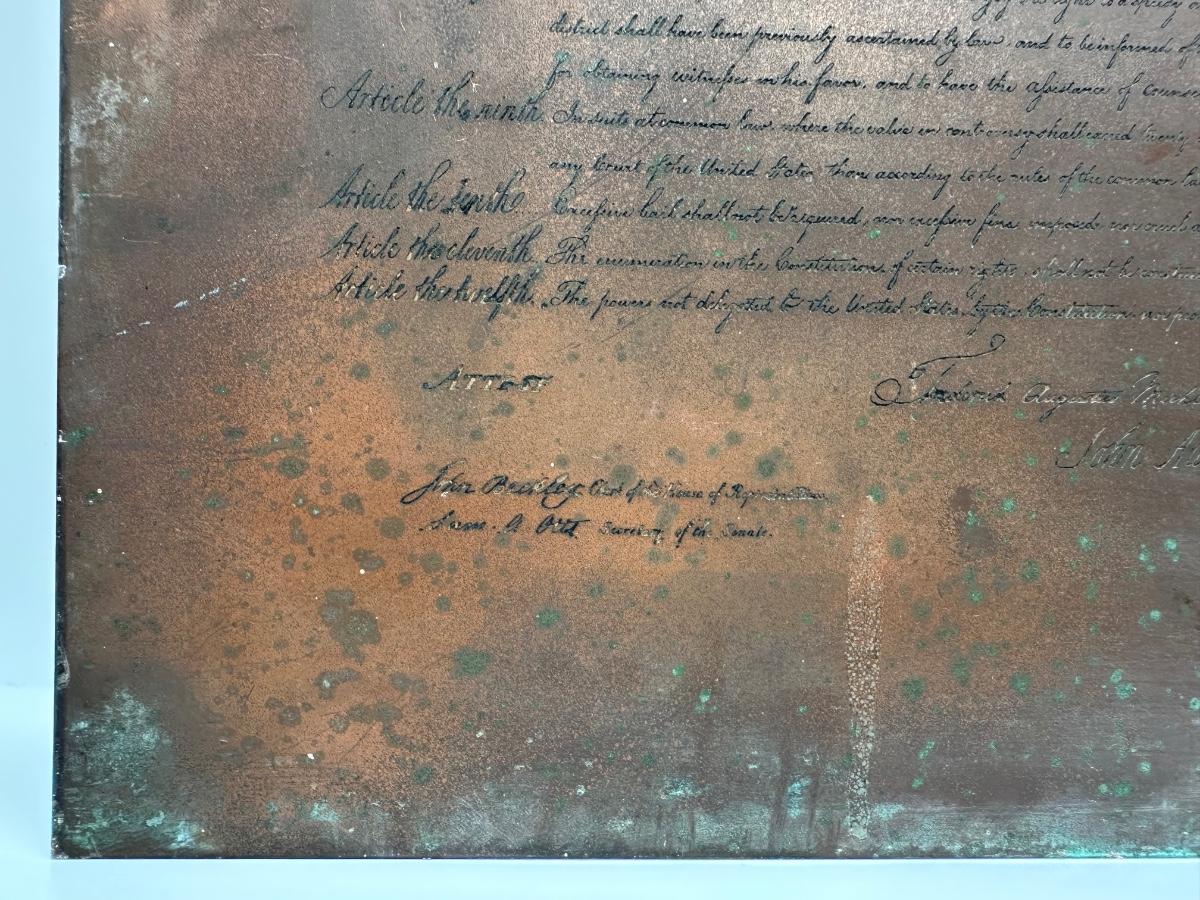 the right to a speedy
district shall have been previously ascertained by law, and to be informed of
for obtaining witnesses in his favor, and to have the assistance of Counsel
Article the ninth. In suits at common law, where the value in controversy shall exceed twenty
any Court of the United States, than according to the rules of the common
Article the tenth. Excessive bail shall not be required, nor excessive fines imposed, nor cruel
Article the eleventh. The enumeration in the Constitution, of certain rights, shall not be
Article the twelfth. The powers not delegated to the United States by the Constitution, nor
ATTEST
Frederick Augustus
John
John Beckley Clerk of the House of Representatives
Sam. A Otis Secretary of the Senate.